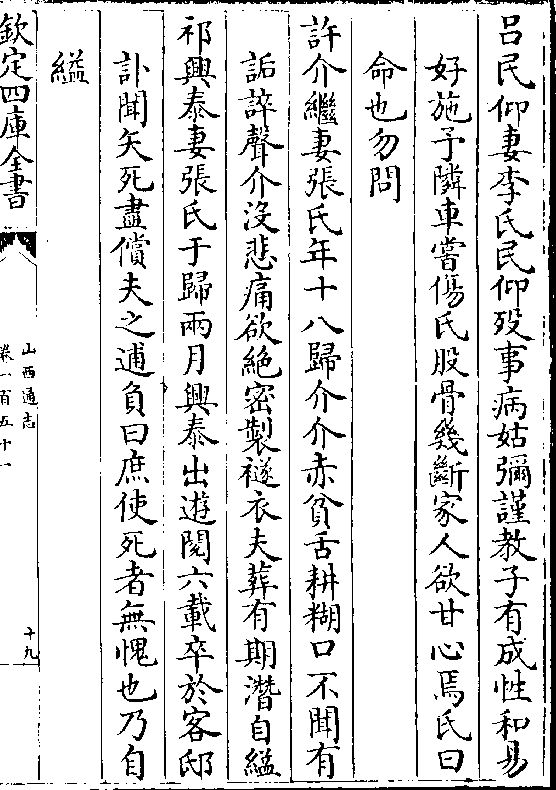 吕民仰妻李氏民仰歿事病姑彌謹教子有成性和易
好施予隣車嘗傷氏股骨幾斷家人欲甘心焉氏曰
命也勿問
許介繼妻張氏年十八歸介介赤貧舌耕糊口不聞有
詬誶聲介沒悲痛欲絶密製襚衣夫葬有期潛自縊
祁興泰妻張氏于歸兩月興泰出遊閱六載卒於客邸
訃聞矢死盡償夫之逋負曰庶使死者無愧也乃自
縊
欽定四庫全書
山西通志
卷一百五十一
十九